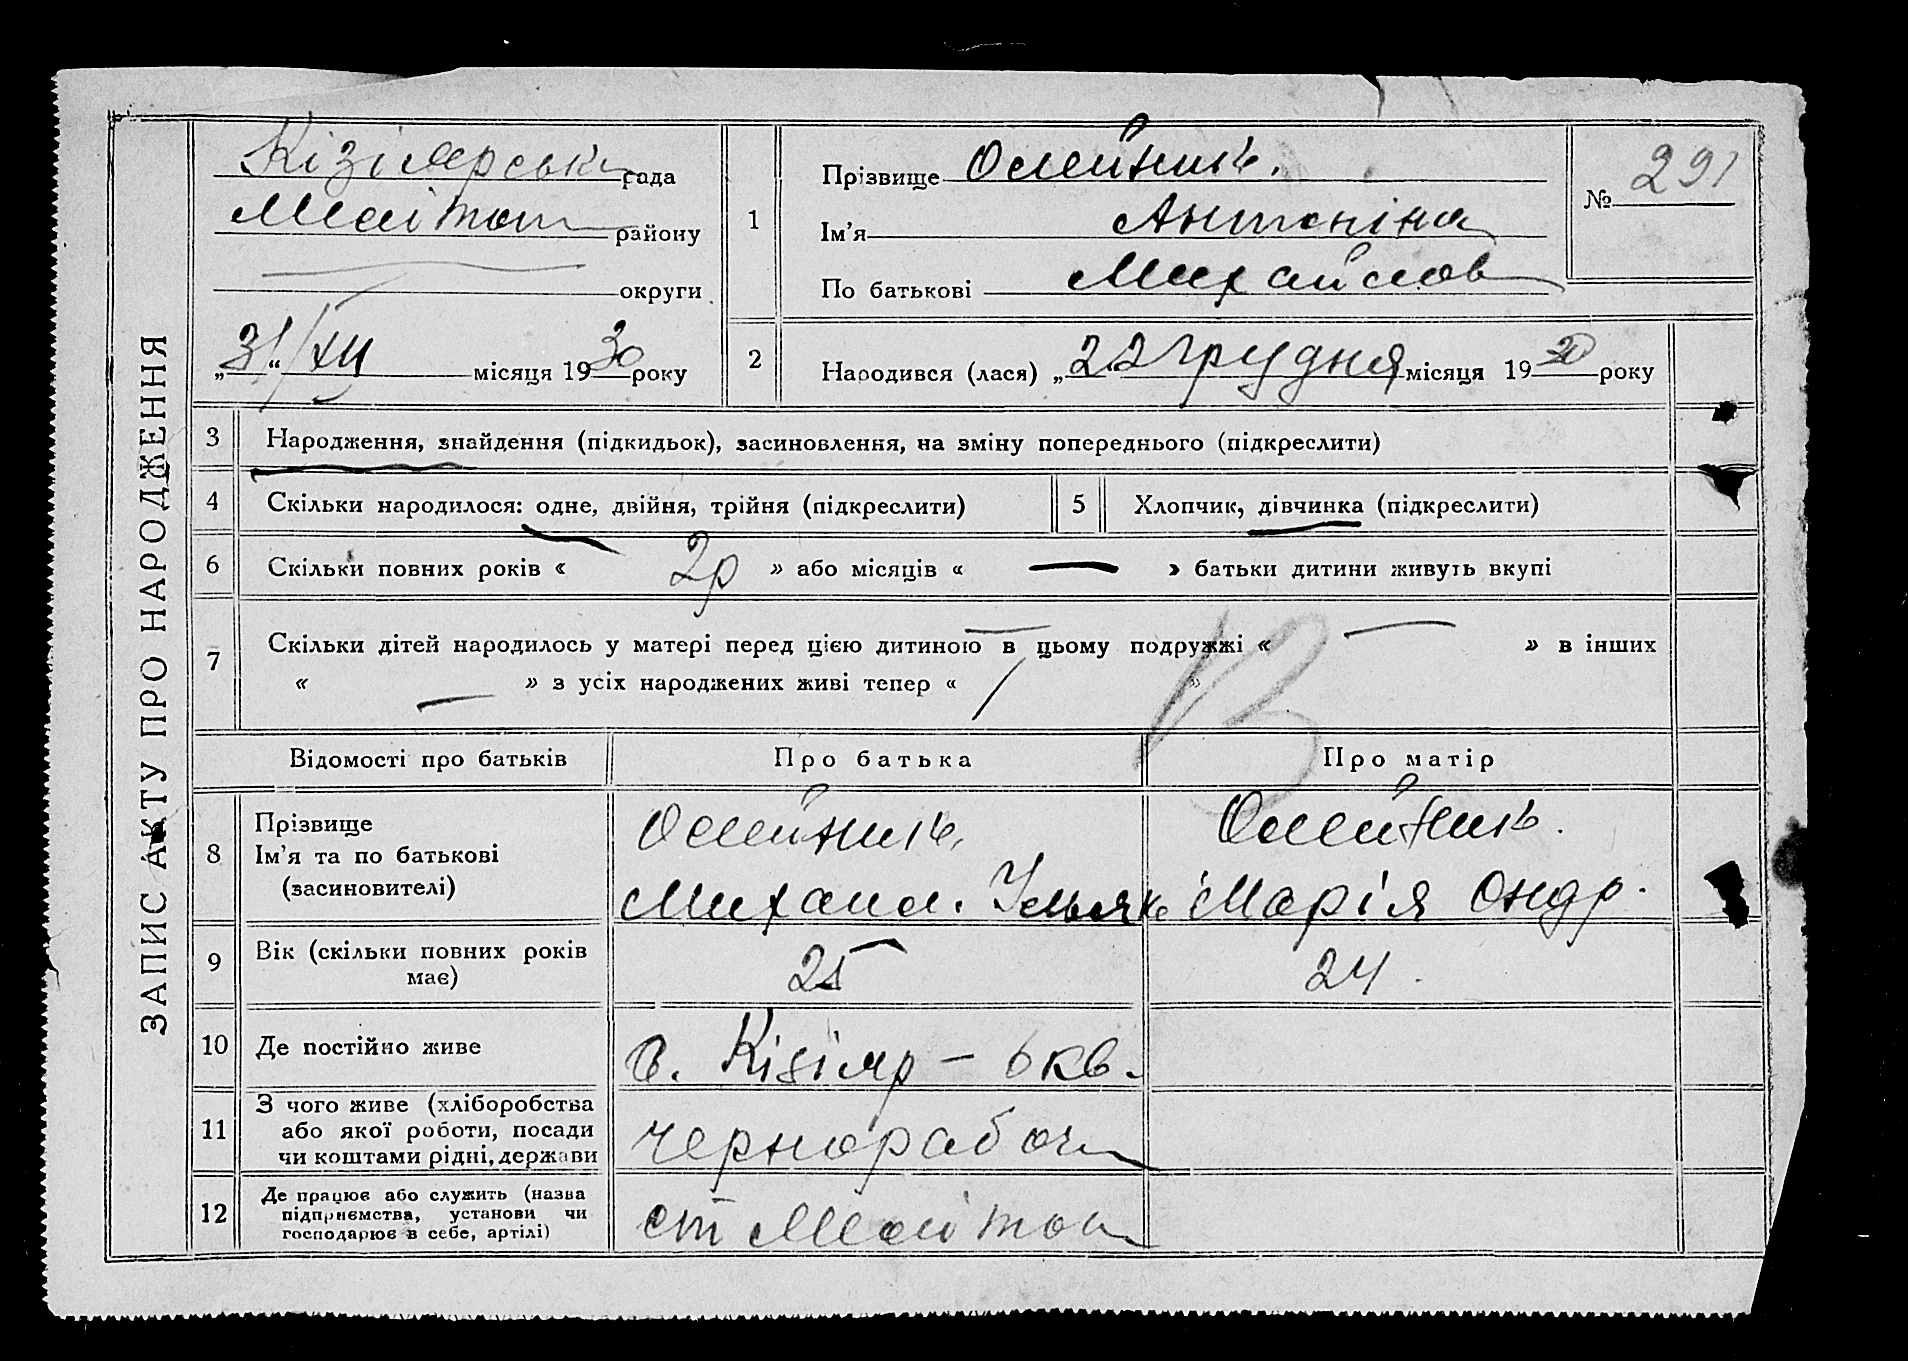 ЗАПИС АКТУ ПРО НАРОДЖЕННЯ
Кізіярська рада
Мелітоп району
округи
„31“ / XII місяця 1930 року
1
Прізвище Олейник.
Ім’я Антоніна
По батькові Михайлов
№ 291
2
Народився (лася) „22 грудня місяця 1930 року
3 Народження, знайдення (підкидьок), засиновлення, на зміну попереднього (підкреслити)
4 Скільки народилося: одне, двійня, трійня (підкреслити)
5 Хлопчик, дівчинка (підкреслити)
6 Скільки повних років « 2р » або місяців « — » батьки дитини живуть вкупі
7 Скільки дітей народилось у матері перед цією дитиною в цьому подружжі « — » в інших
« — » з усіх народжених живі тепер « / »
Відомості про батьків Про батька Про матір
8 Прізвище
Ім’я та по батькові
(засиновителі)
Олейник.
Михаил.
Олейник.
Марія Ондр.
9 Вік (скільки повних років
має)
25
24.
10 Де постійно живе
с. Кізіяр – 6 кв.
11 З чого живе (хліборобства
або якої роботи, посади
чи коштами рідні, держави
чернорабоч
12 Де працює або служить (назва
підприємства, установи чи
господарює в себе, артілі)
ст Мелітоп